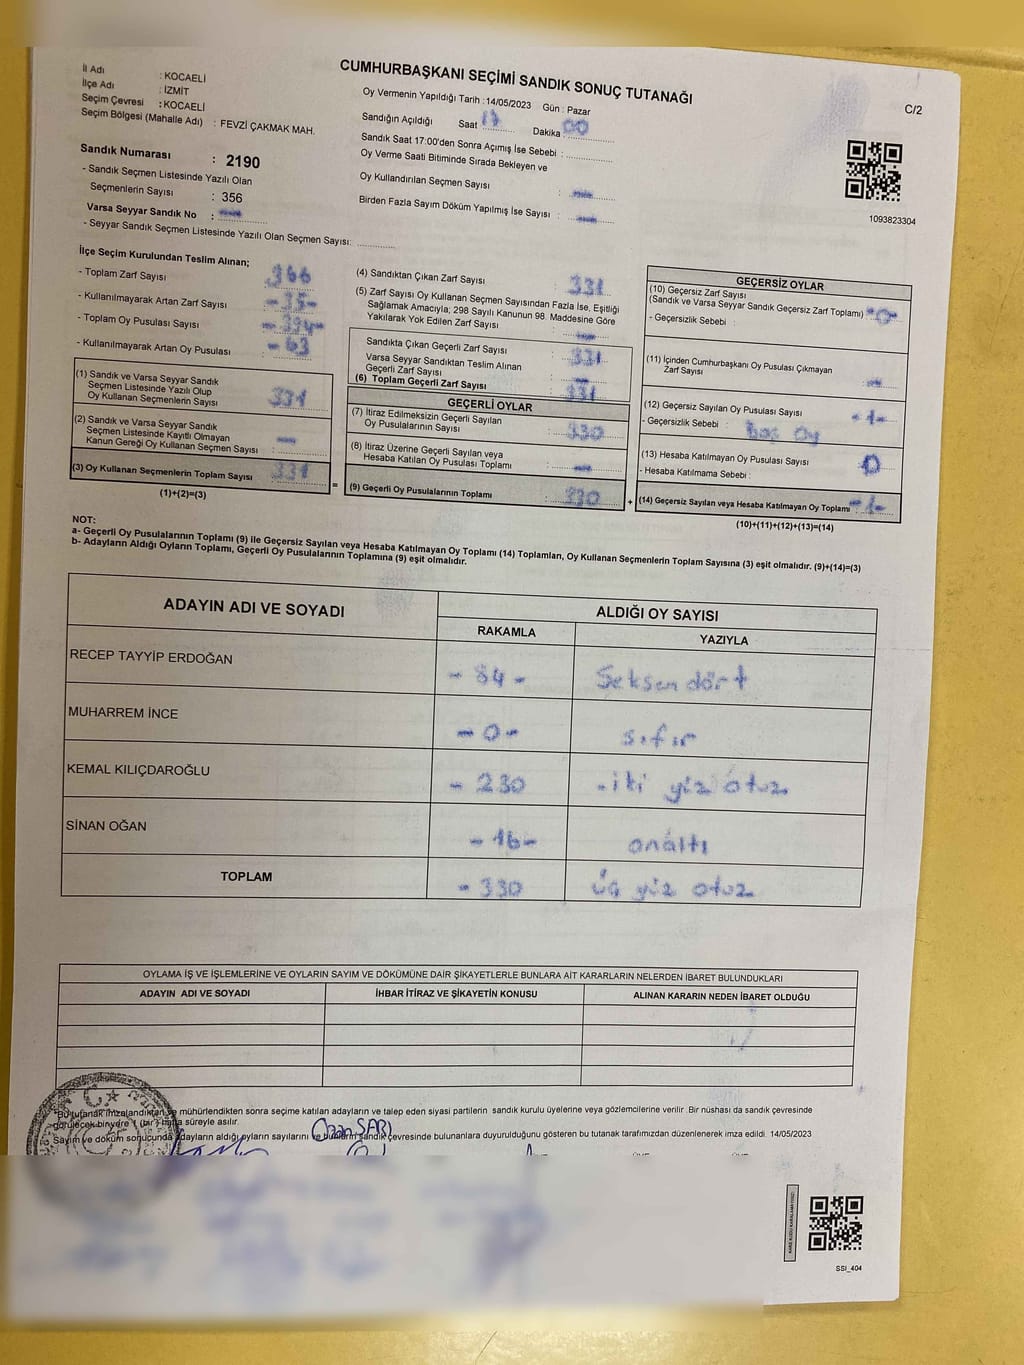 CUMHURBAŞKANI SEÇİMİ SANDIK SONUÇ TUTANAĞI
C/2
İl Adı : KOCAELİ
İlçe Adı : İZMİT
Seçim Çevresi : KOCAELİ
Seçim Bölgesi (Mahalle Adı) : FEVZİ ÇAKMAK MAH.
Oy Vermenin Yapıldığı Tarih :14/05/2023 Gün : Pazar
Sandığın Açıldığı Saat 17 Dakika 00
Sandık Saat 17:00'den Sonra Açımış İse Sebebi :
Oy Verme Saati Bitiminde Sırada Bekleyen ve
Oy Kullandırılan Seçmen Sayısı : -
Birden Fazla Sayım Döküm Yapılmış İse Sayısı : -
1093823304
Sandık Numarası : 2190
- Sandık Seçmen Listesinde Yazılı Olan
Seçmenlerin Sayısı : 356
Varsa Seyyar Sandık No : -
- Seyyar Sandık Seçmen Listesinde Yazılı Olan Seçmen Sayısı:
İlçe Seçim Kurulundan Teslim Alınan;
- Toplam Zarf Sayısı : 366
- Kullanılmayarak Artan Zarf Sayısı : -35-
- Toplam Oy Pusulası Sayısı : -394-
- Kullanılmayarak Artan Oy Pusulası : -63
(1) Sandık ve Varsa Seyyar Sandık
Seçmen Listesinde Yazılı Olup
Oy Kullanan Seçmenlerin Sayısı : 331
(2) Sandık ve Varsa Seyyar Sandık
Seçmen Listesinde Kayıtlı Olmayan
Kanun Gereği Oy Kullanan Seçmen Sayısı : -
(3) Oy Kullanan Seçmenlerin Toplam Sayısı : 331
(1)+(2)=(3)
(4) Sandıktan Çıkan Zarf Sayısı : 331
(5) Zarf Sayısı Oy Kullanan Seçmen Sayısından Fazla İse, Eşitliği
Sağlamak Amacıyla; 298 Sayılı Kanunun 98. Maddesine Göre
Yakılarak Yok Edilen Zarf Sayısı : -
Sandıkta Çıkan Geçerli Zarf Sayısı : 331
Varsa Seyyar Sandıktan Teslim Alınan
Geçerli Zarf Sayısı : -
(6) Toplam Geçerli Zarf Sayısı : 331
GEÇERLİ OYLAR
(7) İtiraz Edilmeksizin Geçerli Sayılan
Oy Pusulalarının Sayısı : 330
(8) İtiraz Üzerine Geçerli Sayılan veya
Hesaba Katılan Oy Pusulası Toplamı : -
= (9) Geçerli Oy Pusulalarının Toplamı : 330 +
GEÇERSİZ OYLAR
(10) Geçersiz Zarf Sayısı
(Sandık ve Varsa Seyyar Sandık Geçersiz Zarf Toplamı) : -0-
- Geçersizlik Sebebi :
(11) İçinden Cumhurbaşkanı Oy Pusulası Çıkmayan
Zarf Sayısı : -
(12) Geçersiz Sayılan Oy Pusulası Sayısı : -1-
- Geçersizlik Sebebi : Boş Oy
(13) Hesaba Katılmayan Oy Pusulası Sayısı : 0
- Hesaba Katılmama Sebebi :
(14) Geçersiz Sayılan veya Hesaba Katılmayan Oy Toplamı : -1-
(10)+(11)+(12)+(13)=(14)
NOT:
a- Geçerli Oy Pusulalarının Toplamı (9) ile Geçersiz Sayılan veya Hesaba Katılmayan Oy Toplamı (14) Toplamları, Oy Kullanan Seçmenlerin Toplam Sayısına (3) eşit olmalıdır. (9)+(14)=(3)
b- Adayların Aldığı Oyların Toplamı, Geçerli Oy Pusulalarının Toplamına (9) eşit olmalıdır.
ADAYIN ADI VE SOYADI ALDIĞI OY SAYISI
RAKAMLA YAZIYLA
RECEP TAYYİP ERDOĞAN - 84 - Seksen dört
MUHARREM İNCE - 0 - sıfır
KEMAL KILIÇDAROĞLU - 230 - iki yüz otuz
SİNAN OĞAN - 16 - onaltı
TOPLAM - 330 üç yüz otuz
OYLAMA İŞ VE İŞLEMLERİNE VE OYLARIN SAYIM VE DÖKÜMÜNE DAİR ŞİKAYETLERLE BUNLARA AİT KARARLARIN NELERDEN İBARET BULUNDUKLARI
ADAYIN ADI VE SOYADI İHBAR İTİRAZ VE ŞİKAYETİN KONUSU ALINAN KARARIN NEDEN İBARET OLDUĞU
*Bu tutanak imzalandıktan ve mühürlendikten sonra seçime katılan adayların ve talep eden siyasi partilerin sandık kurulu üyelerine veya gözlemcilerine verilir. Bir nüshası da sandık çevresinde
görülecek bir yere 1 (bir) hafta süreyle asılır.
Sayım ve döküm sonucunda adayların aldığı oyların sayılarını ve bunların sandık çevresinde bulunanlara duyurulduğunu gösteren bu tutanak tarafımızdan düzenlenerek imza edildi. 14/05/2023
Ozan SARI
SSI_404